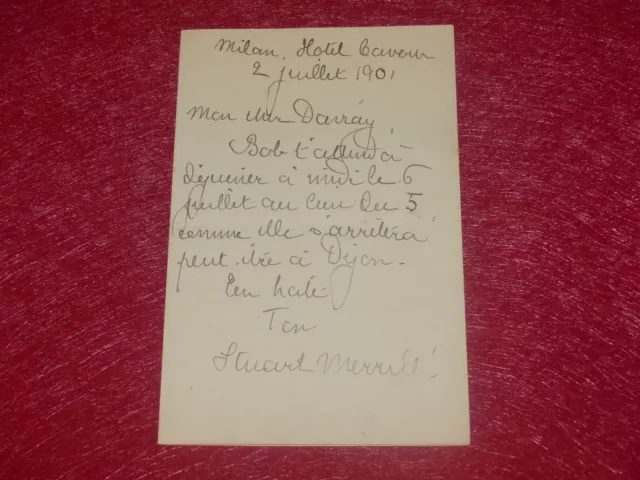 Milan, Hotel Cavour
2 juillet 1901
Mon cher Davray
Bob t'attend à
déjeuner à midi le 6
juillet au lieu du 5
comme elle s'arrêtera
peut être à Dijon.
En hate
Ton
Stuart Merrill